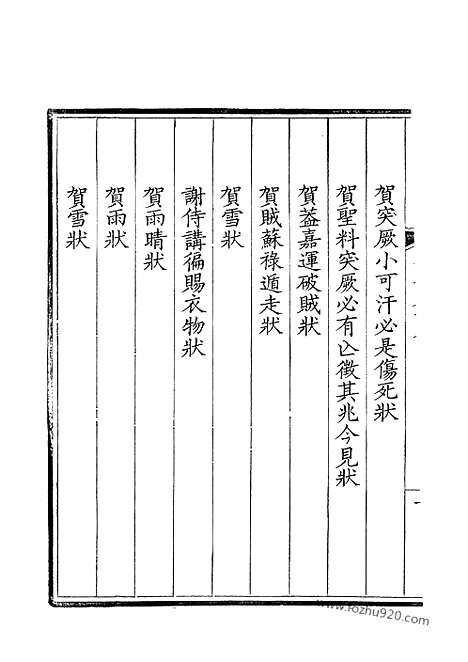 賀突厥小可汗必是傷死狀
賀聖料突厥必有亾徵其兆今見狀
賀葢嘉運破賊狀
賀賊蘇祿遁走狀
賀雪狀
謝侍講徧賜衣物狀
賀雨晴狀
賀雨狀
賀雪狀
www.fozhu920.com